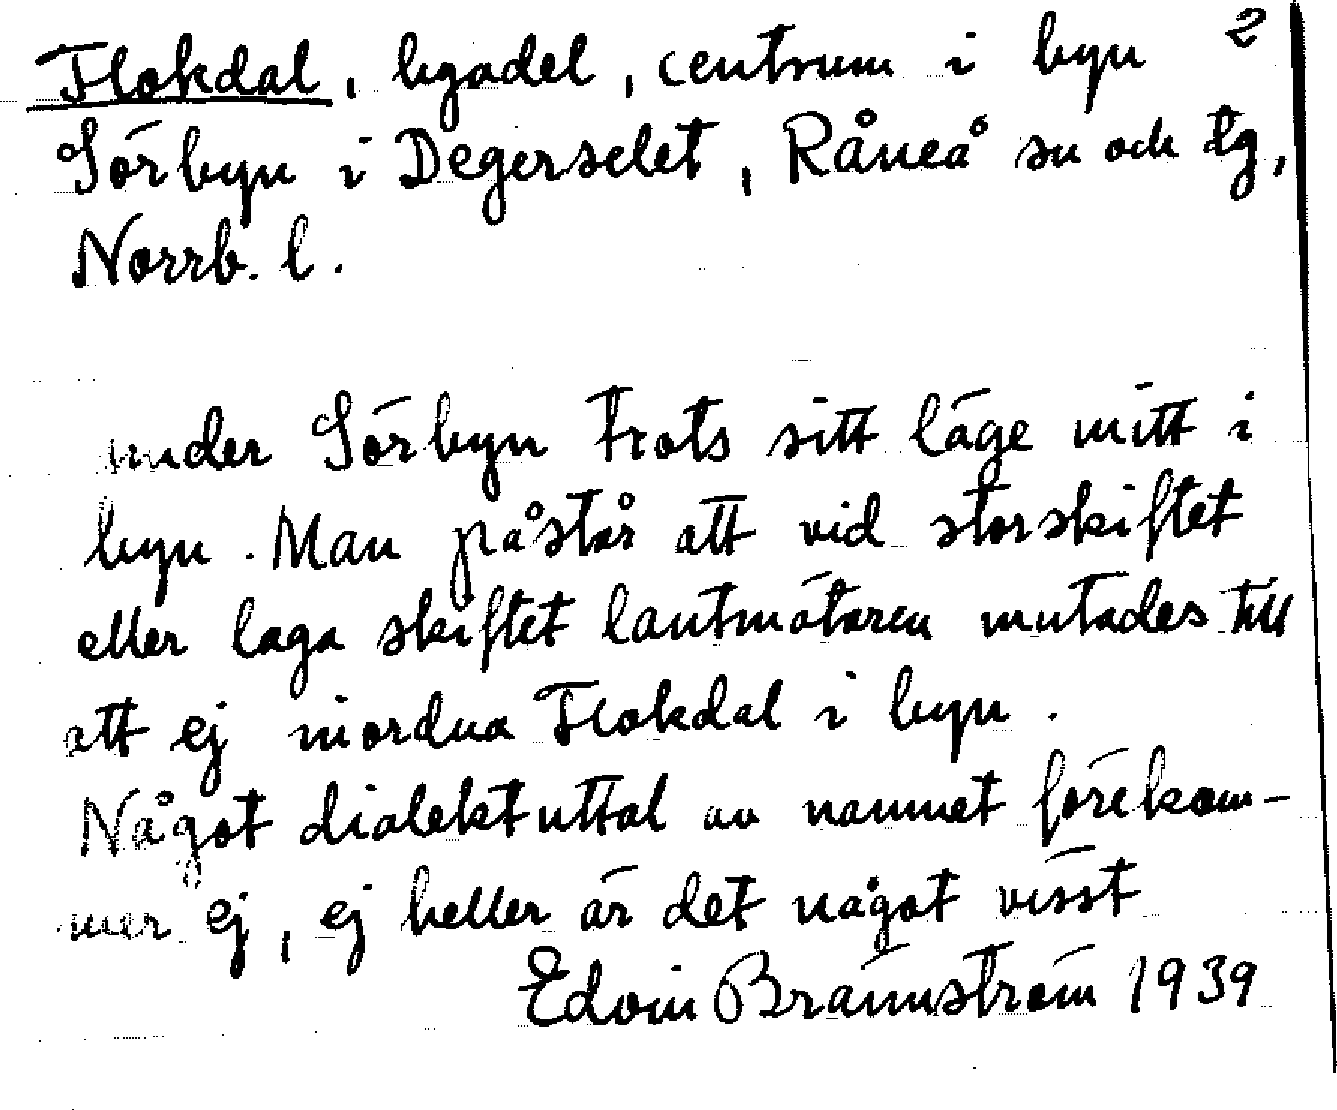 Flakdal, byadel, centrum i byn 2
Sörbyn i Degerselet, Råneå sn och tg,
Norrb. l.
under Sörbyn trots sitt läge mitt i
byn. Man påstår att vid storskiftet
eller laga skiftet lantmätaren mutades till
att ej inordna Flakdal i byn.
Något dialektuttal av namnet förekom-
mer ej, ej heller är det något visst
Edvin Brännström 1939